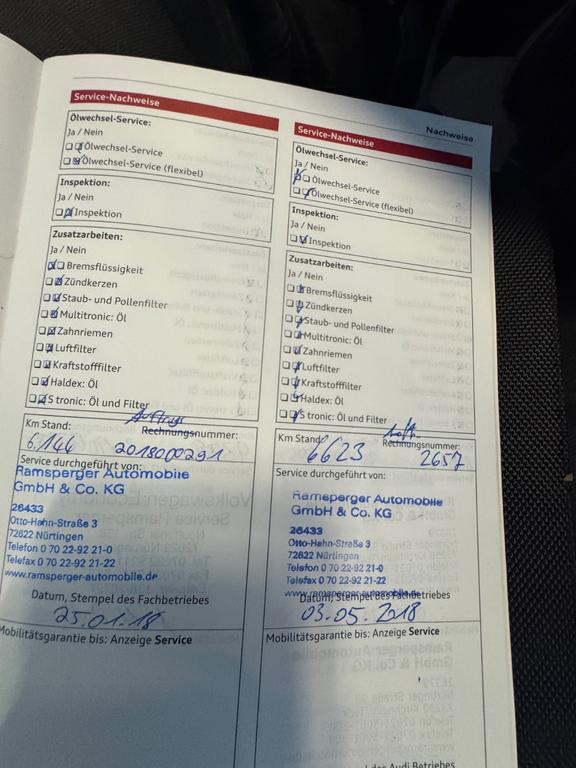 Nachweise
Service-Nachweise
Ölwechsel-Service:
Ja / Nein
Ölwechsel-Service
Ölwechsel-Service (flexibel)
Inspektion:
Ja / Nein
Inspektion
Zusatzarbeiten:
Ja / Nein
Bremsflüssigkeit
Zündkerzen
Staub- und Pollenfilter
Multitronic: Öl
Zahnriemen
Luftfilter
Kraftstofffilter
Haldex: Öl
S tronic: Öl und Filter
Auftrags
Km Stand: Rechnungsnummer:
6.146 2018000291
Service durchgeführt von:
Ramsperger Automobile
GmbH & Co. KG
26433
Otto-Hahn-Straße 3
72622 Nürtingen
Telefon 0 70 22-92 21-0
Telefax 0 70 22-92 21-22
www.ramsperger-automobile.de
Datum, Stempel des Fachbetriebes
25.01.18
Mobilitätsgarantie bis: Anzeige Service
Service-Nachweise
Ölwechsel-Service:
Ja / Nein
Ölwechsel-Service
Ölwechsel-Service (flexibel)
Inspektion:
Ja / Nein
Inspektion
Zusatzarbeiten:
Ja / Nein
Bremsflüssigkeit
Zündkerzen
Staub- und Pollenfilter
Multitronic: Öl
Zahnriemen
Luftfilter
Kraftstofffilter
Haldex: Öl
S tronic: Öl und Filter
Km Stand: Rechnungsnummer:
6623 2657
Service durchgeführt von:
Ramsperger Automobile
GmbH & Co. KG
26433
Otto-Hahn-Straße 3
72622 Nürtingen
Telefon 0 70 22-92 21-0
Telefax 0 70 22-92 21-22
www.ramsperger-automobile.de
Datum, Stempel des Fachbetriebes
03.05.2018
Mobilitätsgarantie bis: Anzeige Service
des Audi Betriebes